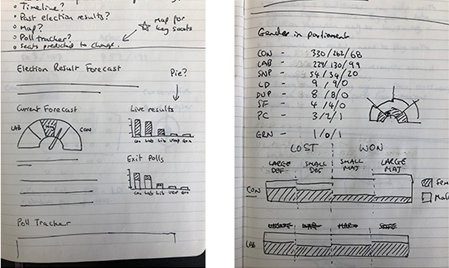 • Timeline?
• Past election results?
• Map?
• Poll tracker?
• Seats predicted to change.
☆ Map for
key seats
Election Result Forecast
Pie?
Current Forecast
LAB
CON
Live results
Con Lab Lib
Exit Polls
Con Lab Lib
Poll Tracker
Gender in parliament
CON - 330/262/68
LAB - 229/130/99
SNP - 54/34/20
LD - 9/9/0
DUP - 8/8/0
SF - 4/4/0
PC - 3/2/1
GRN - 1/0/1
LOST WON
LARGE DEF SMALL DEF SMALL MAJ LARGE MAJ
CON
Fem
Male
LAB